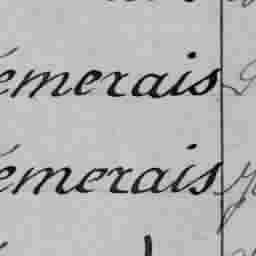 émerais
émerais